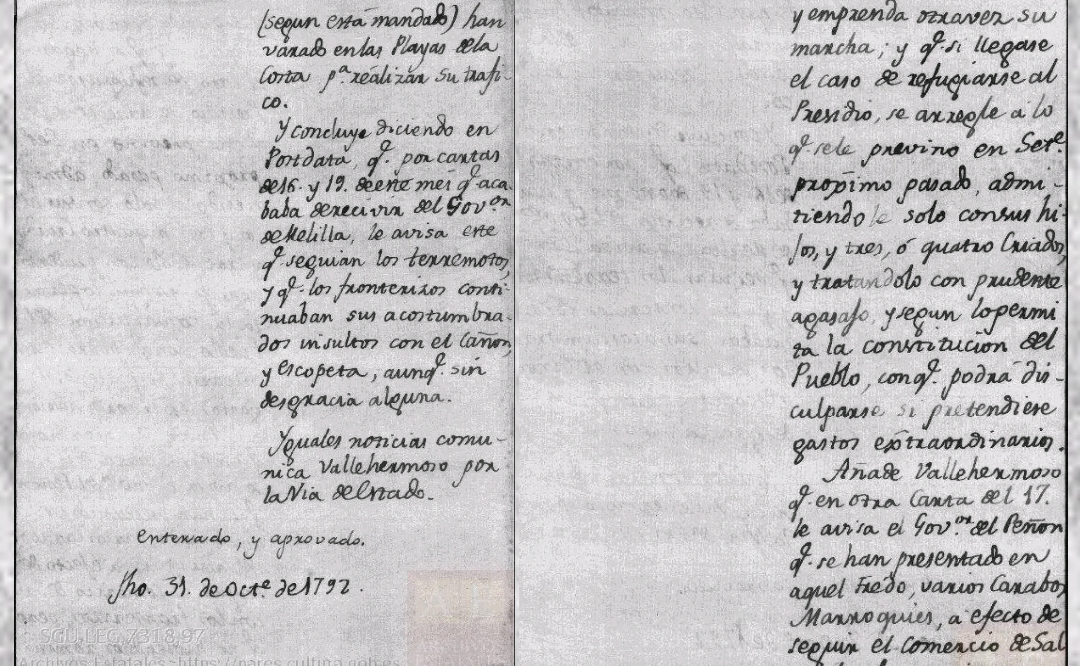 (segun está mandado) han
varado en las Playas de la
Costa pª. realizar su trafi-
co.
Y concluye diciendo en
Postdata, qᵉ. por cartas
de 16. y 19. de este mes qᵉ. aca-
baba de recivir del Govᵒʳ
de Melilla, le avisa este
qᵉ. seguian los terremotos,
y qᵉ. los fronterizos conti-
nuaban sus acostumbra-
dos insultos con el Cañon,
y escopeta, aunqᵉ. sin
desgracia alguna.
Yguales noticias comu-
nica Vallehermoso por
la Via de Estado.
enterado, y aprovado.
fho. 31. de Octᵉ. de 1792.
SGU,LEG,7318,97
Archivos Estatales, https://pares.cultura.gob.es
y emprenda otra vez su
marcha; y qᵉ. si llegase
el caso de refugiarse al
Presidio, se arregle a lo
qᵉ. se le previno en Setᵉ.
proximo pasado, admi-
tiendole solo con sus hi-
jos, y tres, ó quatro Criados,
y tratandolo con prudente
agasajo, y segun lo permi
ta la constitucion del
Pueblo, con qᵉ. podrá dis-
culparse si pretendiese
gastos extraordinarios.
Añade Vallehermoso
qᵉ. en otra Carta del 17.
le avisa el Govᵒʳ. del Peñon
qᵉ. se han presentado en
aquel Fredo, varios Carabos
Marroquies, a efecto de
seguir el Comercio de Sal